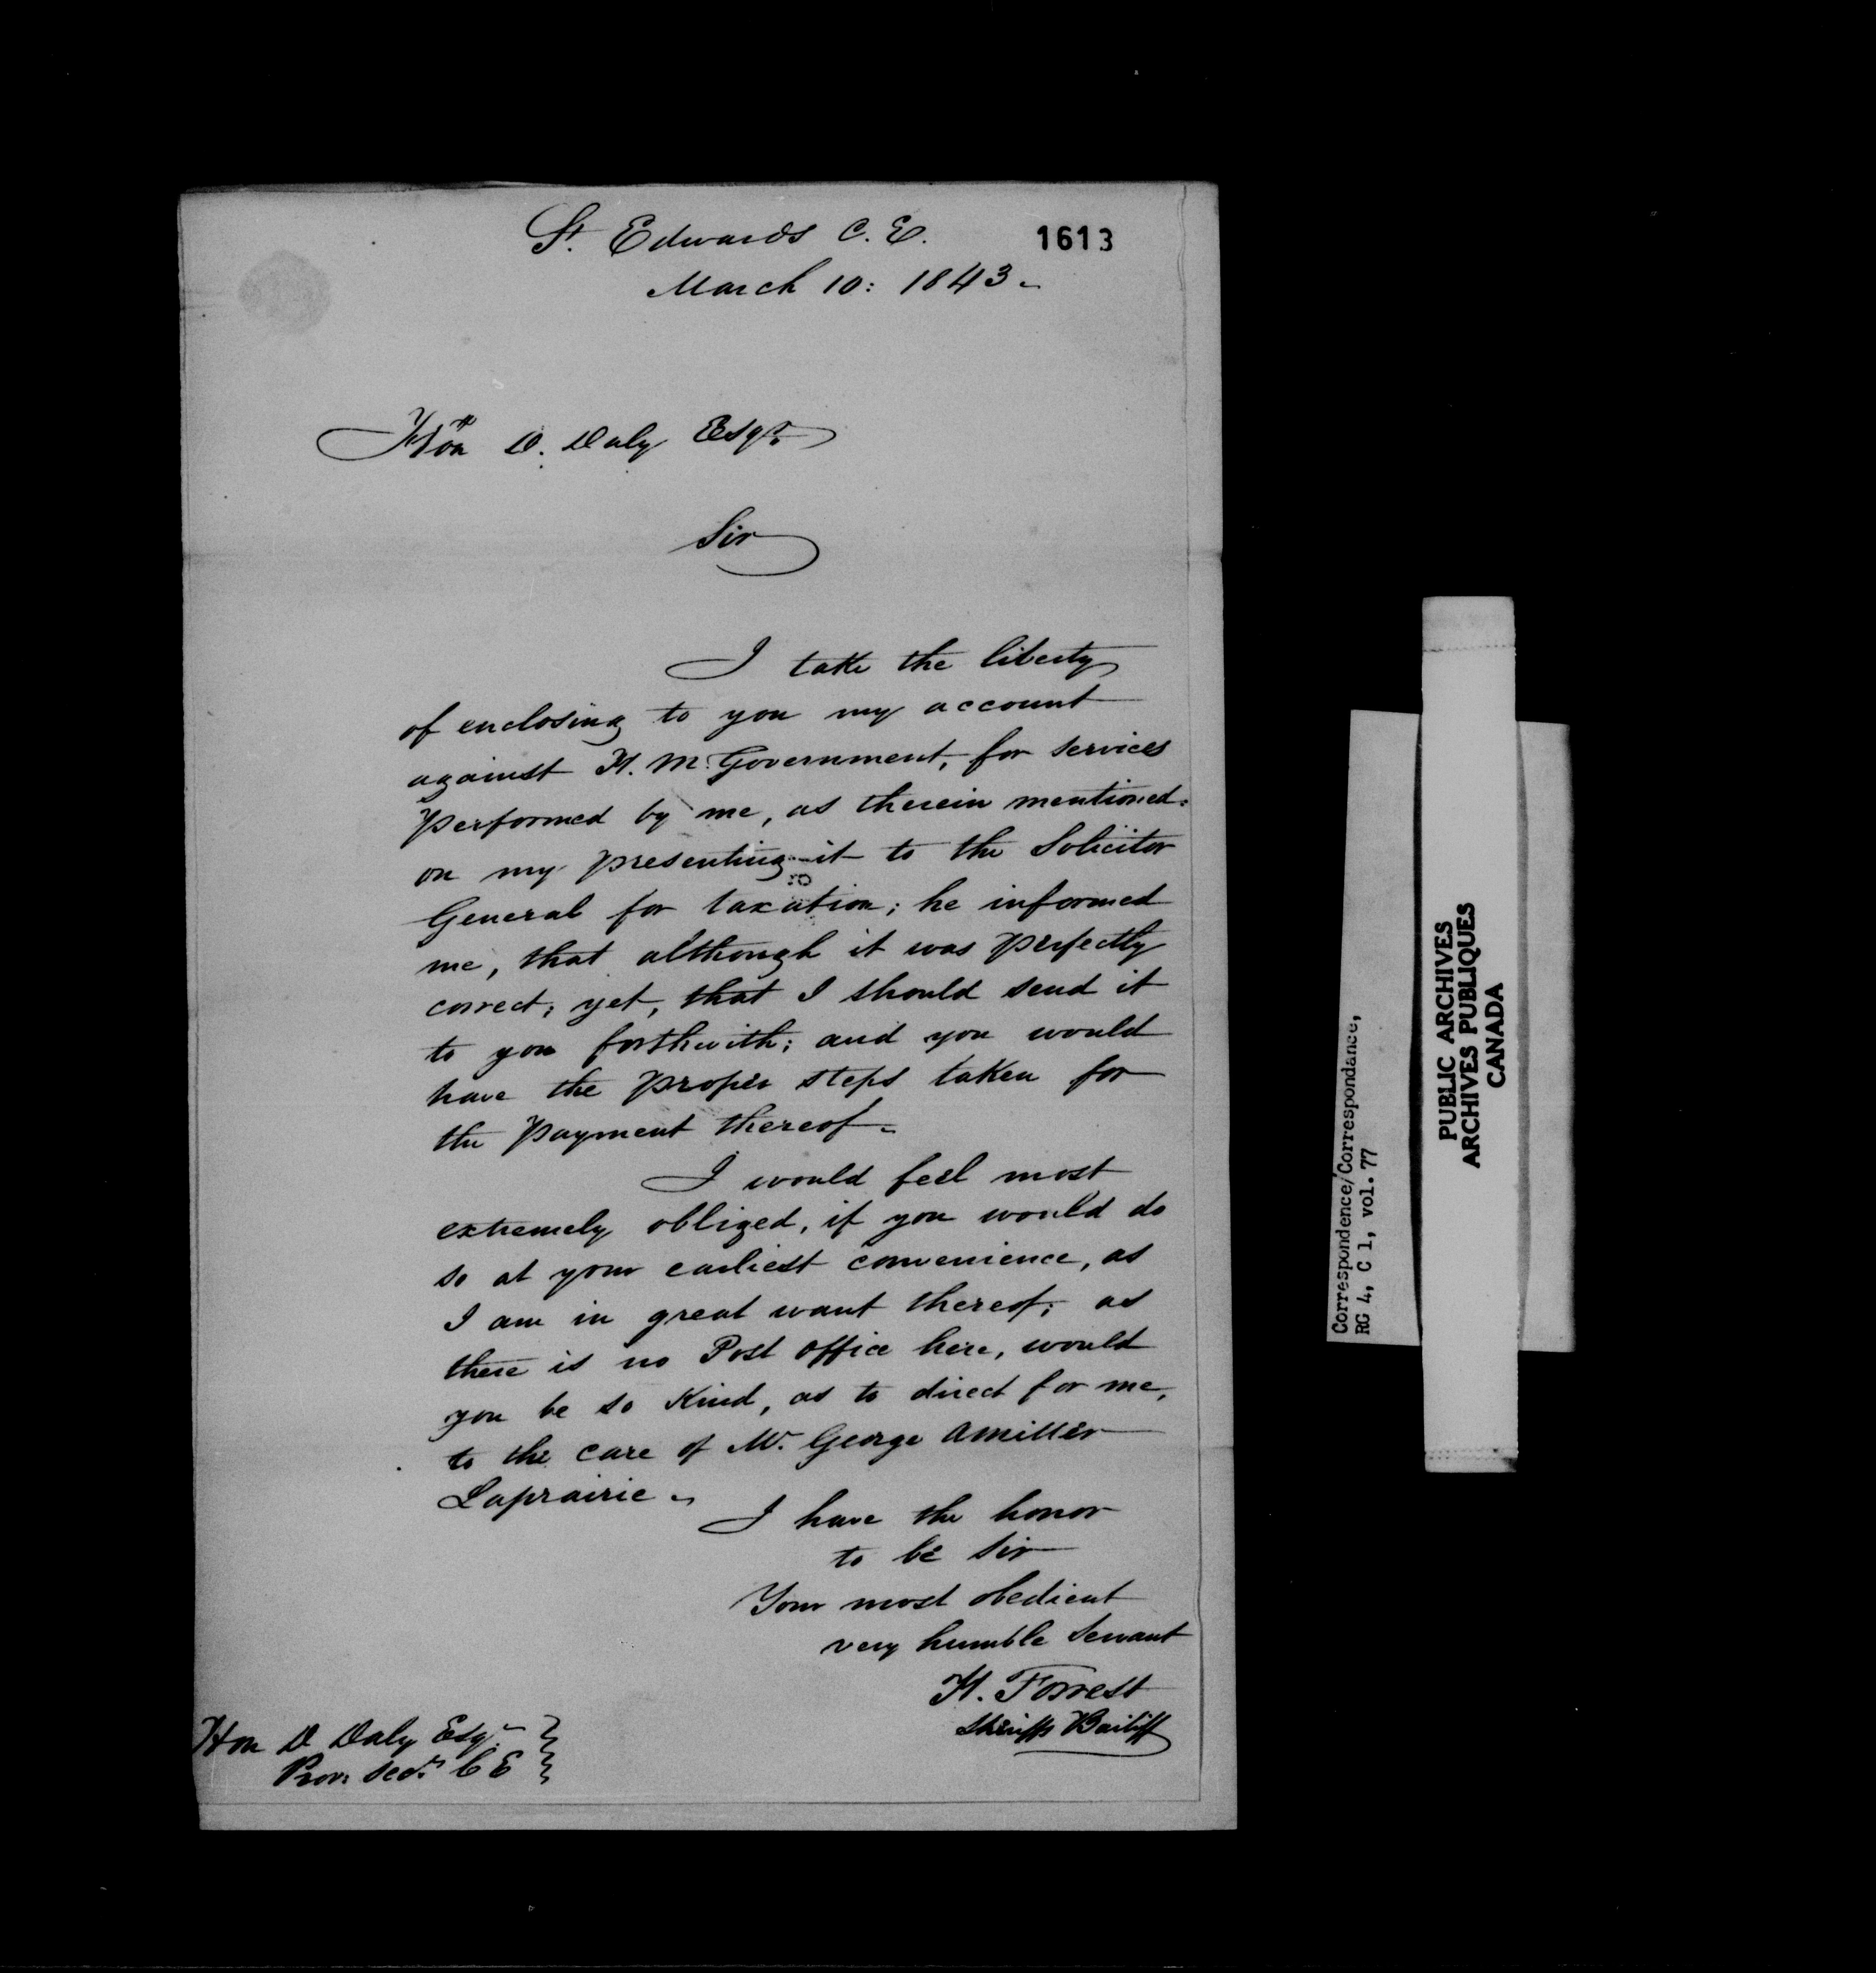 St. Edwards C. E.
1613
March 10: 1843
Hon D. Daly Esqr.
Sir
I take the liberty
of enclosing to you my account
against H. M. Government, for services
Performed by me, as therein mentioned.
on my presenting it to the Solicitor
General for taxation; he informed
me, that although it was perfectly
correct; yet, that I should send it
to you forthwith; and you would
have the proper steps taken for
the Payment thereof.
I would feel most
extremely obliged, if you would do
so at your earliest convenience, as
I am in great want thereof; as
there is no Post office here, would
you be so Kind, as to direct for me,
to the care of Mr. George
Laprairie.
I have the honor
to be Sir
Your most obedient
very humble Servant
H. Forrest
Sheriffs Bailiff
Hon D Daly Esqr.
Prov. Secy. C E
Correspondence/Correspondance,
RG 4, C 1, vol. 77
PUBLIC ARCHIVES
ARCHIVES PUBLIQUES
CANADA